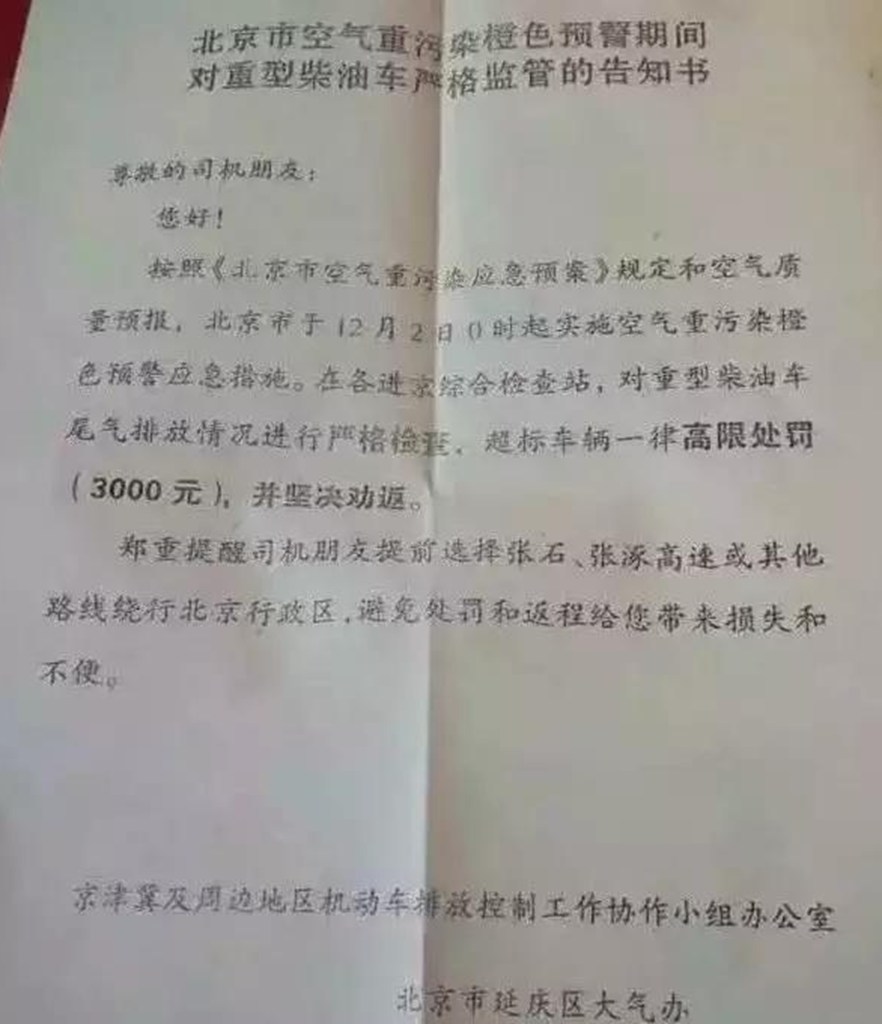 北京市空气重污染橙色预警期间
对重型柴油车严格监管的告知书
尊敬的司机朋友：
您好！
按照《北京市空气重污染应急预案》规定和空气质
量预报，北京市于12月2日0时起实施空气重污染橙
色预警应急措施。在各进京综合检查站，对重型柴油车
尾气排放情况进行严格检查，超标车辆一律高限处罚
（3000元），并坚决劝返。
郑重提醒司机朋友提前选择张石、张涿高速或其他
路线绕行北京行政区，避免处罚和返程给您带来损失和
不便。
京津冀及周边地区机动车排放控制工作协作小组办公室
北京市延庆区大气办